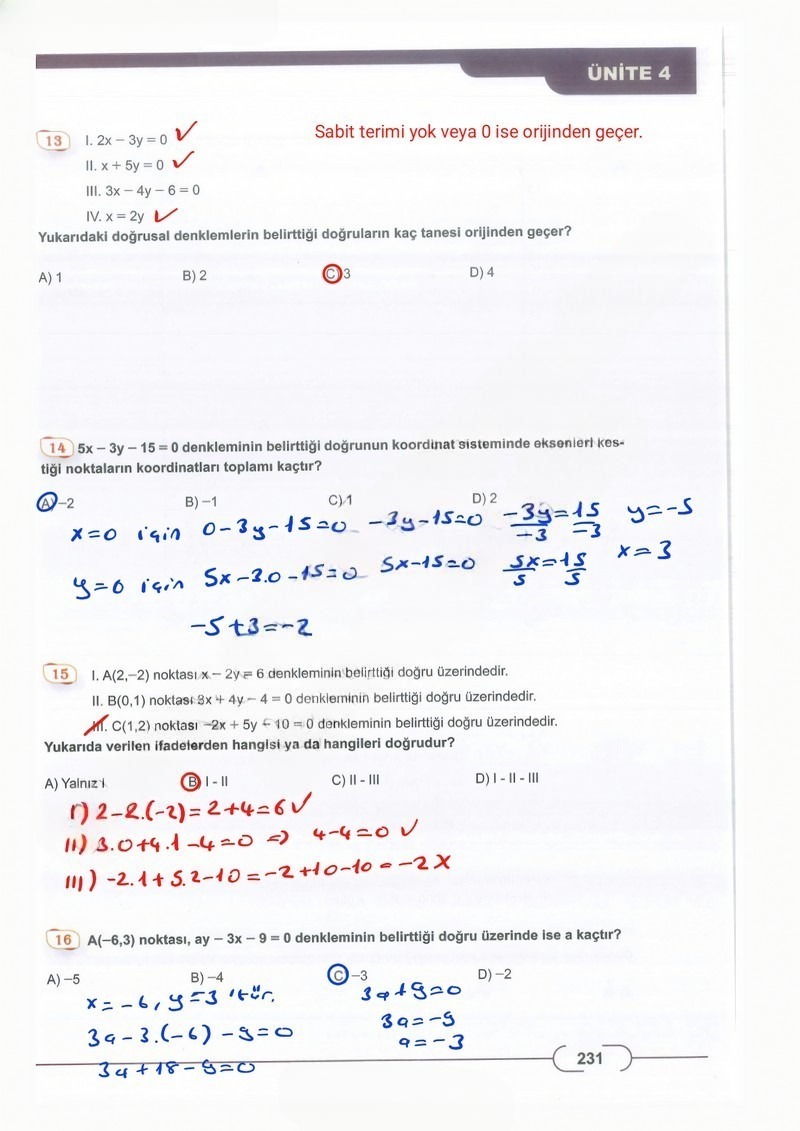 ÜNİTE 4
13 I. 2x – 3y = 0 ✓ Sabit terimi yok veya 0 ise orijinden geçer.
II. x + 5y = 0 ✓
III. 3x – 4y – 6 = 0
IV. x = 2y ✓
Yukarıdaki doğrusal denklemlerin belirttiği doğruların kaç tanesi orijinden geçer?
A) 1 B) 2 C) 3 D) 4
14 5x – 3y – 15 = 0 denkleminin belirttiği doğrunun koordinat sisteminde eksenleri kes-
tiği noktaların koordinatları toplamı kaçtır?
A) –2 B) –1 C) 1 D) 2
x=0 için 0-3y-15=0 -3y-15=0 -3y/-3=15/-3 y=-5
y=0 için 5x-3.0-15=0 5x-15=0 5x/5=15/5 x=3
-5+3=-2
15 I. A(2,–2) noktası x – 2y = 6 denkleminin belirttiği doğru üzerindedir.
II. B(0,1) noktası 3x + 4y – 4 = 0 denkleminin belirttiği doğru üzerindedir.
III. C(1,2) noktası –2x + 5y – 10 = 0 denkleminin belirttiği doğru üzerindedir.
Yukarıda verilen ifadelerden hangisi ya da hangileri doğrudur?
A) Yalnız I B) I - II C) II - III D) I - II - III
I) 2-2.(-2)=2+4=6 ✓
II) 3.0+4.1-4=0 => 4-4=0 ✓
III) -2.1+5.2-10=-2+10-10=-2 X
16 A(–6,3) noktası, ay – 3x – 9 = 0 denkleminin belirttiği doğru üzerinde ise a kaçtır?
A) –5 B) –4 C) –3 D) –2
x=-6, y=3 'tür. 3a+9=0
3a-3.(-6)-9=0 3a=-9
3a+18-9=0 a=-3
231